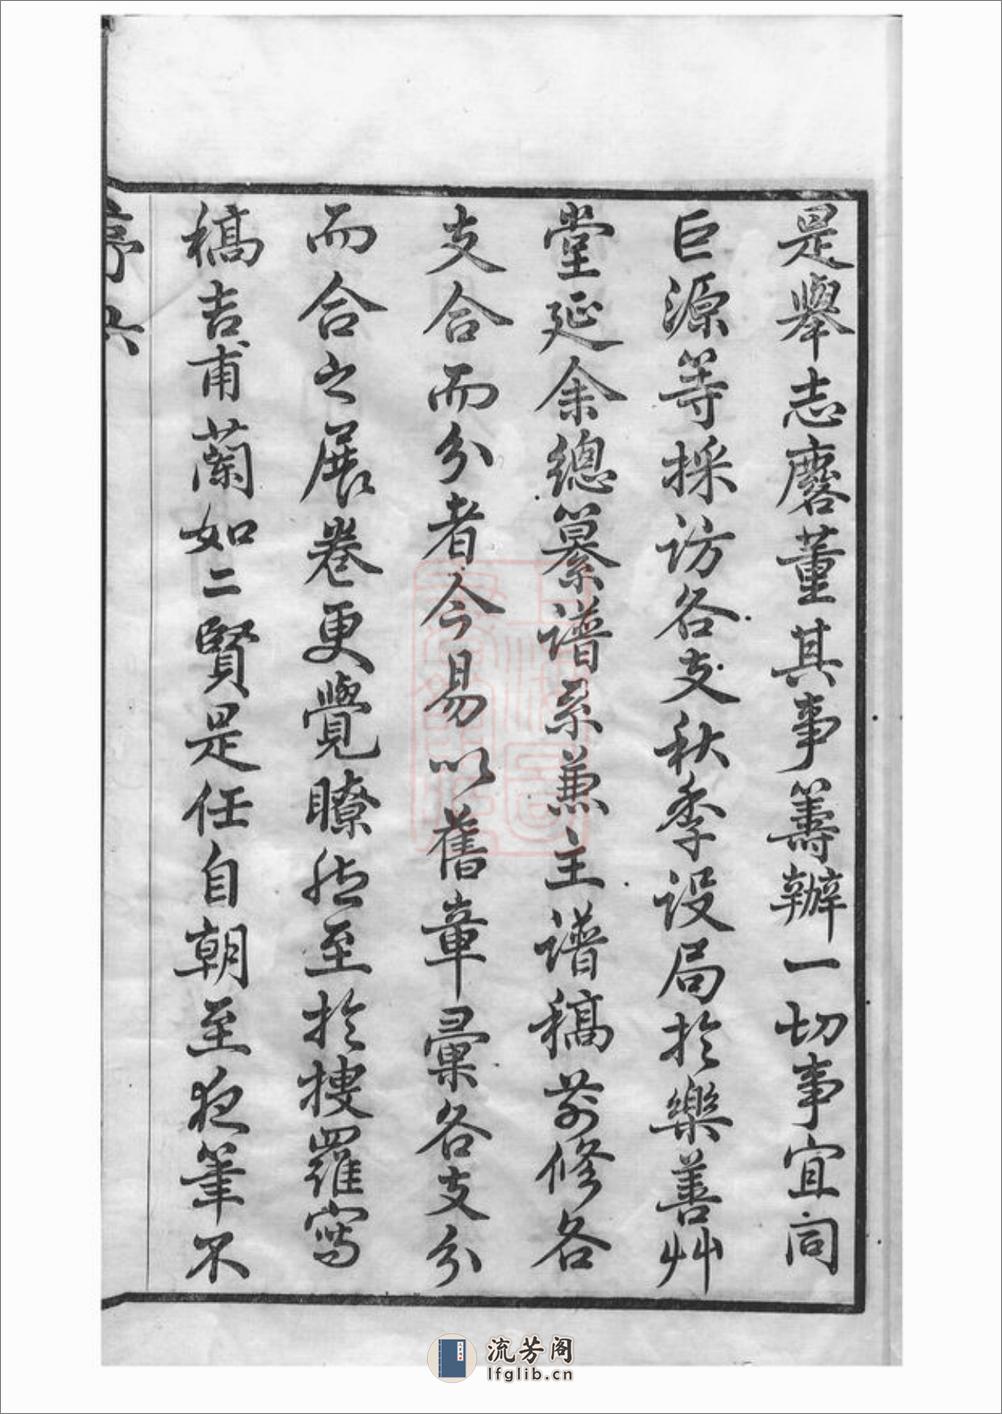 是舉志磨董其事籌辦一切事宜同
巨源等採訪各支秋季設局於樂善艸
堂延余總纂譜系兼主譜稿前修各
支合而分者今易以舊章彙各支分
而合之展卷更覺瞭然至於搜羅寫
稿吉甫蘭如二賢是任自朝至夜筆不
序六
流芳阁
lfglib.cn